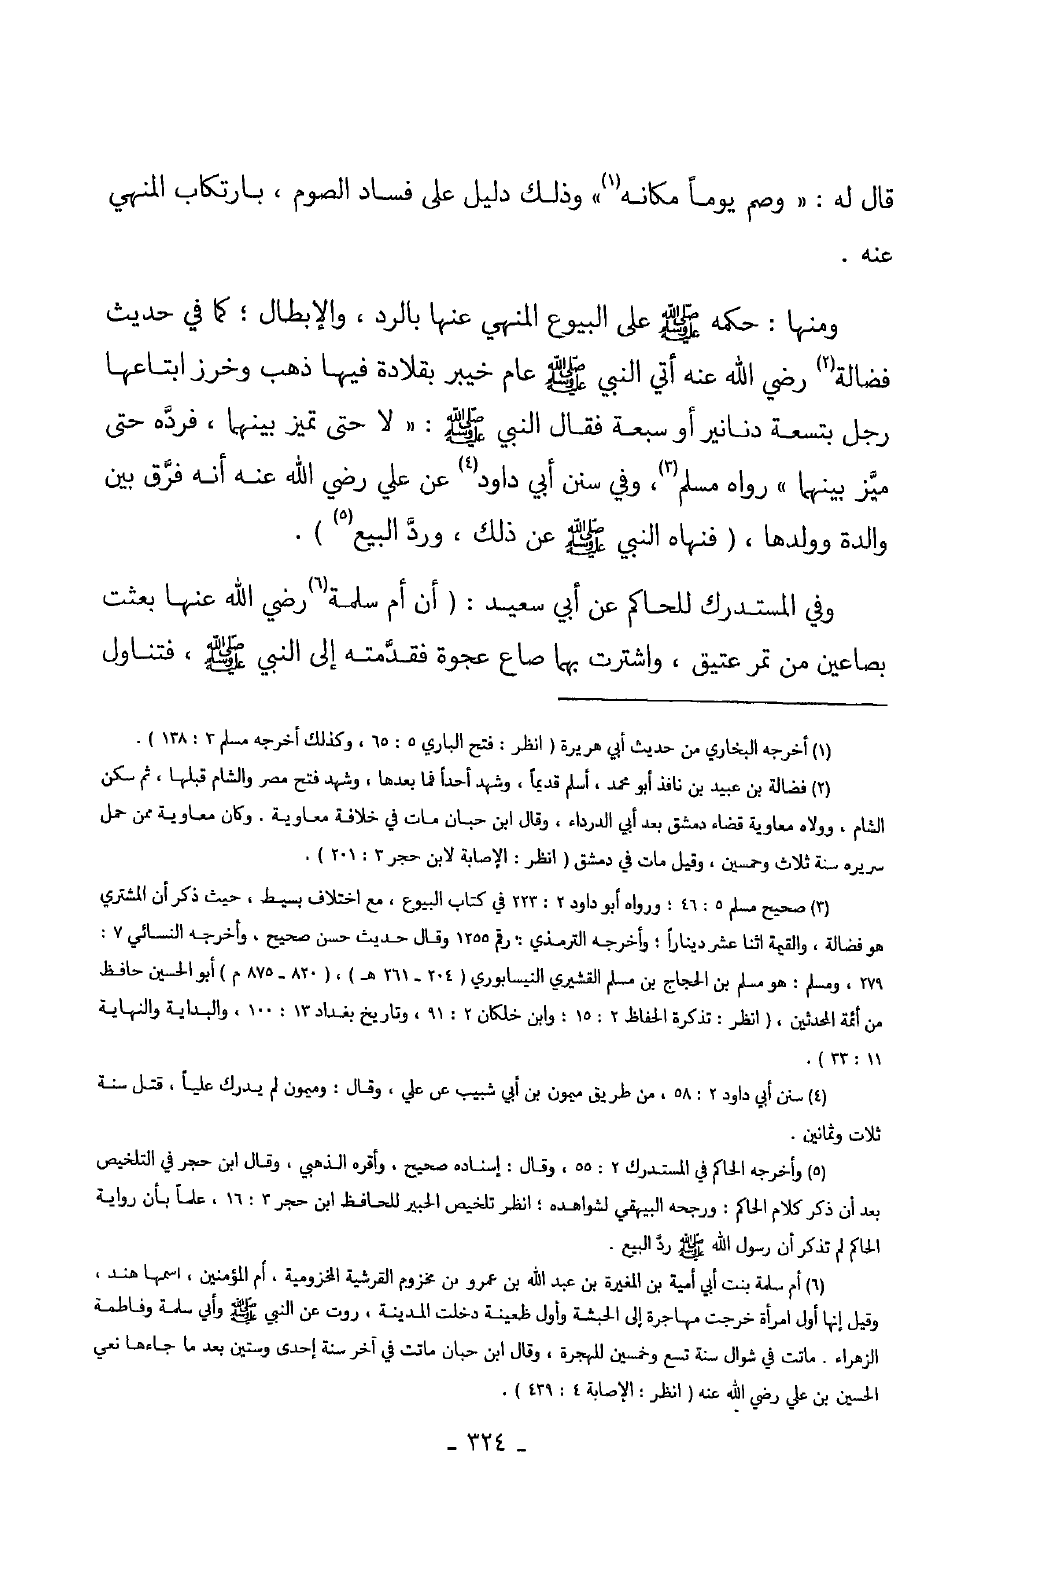 قال له : « وصم يوماً مكانه(١)» وذلك دليل على فساد الصوم ، بارتكاب المنهي
عنه .
ومنها : حكمه ﷺ على البيوع المنهي عنها بالرد ، والإبطال ؛ كما في حديث
فضالة(٢) رضي الله عنه أتي النبي ﷺ عام خيبر بقلادة فيها ذهب وخرز ابتاعها
رجل بتسعة دنانير أو سبعة فقال النبي ﷺ : « لا حتى تميز بينها ، فردَّه حتى
ميَّز بينها » رواه مسلم(٣)، وفي سنن أبي داود(٤) عن علي رضي الله عنه أنه فرَّق بين
والدة وولدها ، ( فنهاه النبي ﷺ عن ذلك ، وردَّ البيع(٥) ) .
وفي المستدرك للحاكم عن أبي سعيد : ( أن أم سلمة(٦) رضي الله عنها بعثت
بصاعين من تمر عتيق ، واشترت بها صاع عجوة فقدَّمته إلى النبي ﷺ ، فتناول
(١) أخرجه البخاري من حديث أبي هريرة ( انظر : فتح الباري ٥ : ٦٥ ، وكذلك أخرجه مسلم ٣ : ١٣٨ ) .
(٢) فضالة بن عبيد بن نافذ أبو محمد ، أسلم قديماً ، وشهد أحداً فما بعدها ، وشهد فتح مصر والشام قبلها ، ثم سكن
الشام ، وولاه معاوية قضاء دمشق بعد أبي الدرداء ، وقال ابن حبان مات في خلافة معاوية . وكان معاوية ممن حمل
سريره سنة ثلاث وخمسين ، وقيل مات في دمشق ( انظر : الإصابة لابن حجر ٣ : ٢٠١ ) .
(٣) صحيح مسلم ٥ : ٤٦ ؛ ورواه أبو داود ٢ : ٢٢٣ في كتاب البيوع ، مع اختلاف بسيط ، حيث ذكر أن المشتري
هو فضالة ، والقيمة اثنا عشر ديناراً ؛ وأخرجه الترمذي : رقم ١٢٥٥ وقال حديث حسن صحيح ، وأخرجه النسائي ٧ :
٢٧٩ ، ومسلم : هو مسلم بن الحجاج بن مسلم القشيري النيسابوري ( ٢٠٤ - ٢٦١ هـ ) ، ( ٨٢٠ - ٨٧٥ م ) أبو الحسين حافظ
من أئمة المحدثين ، ( انظر : تذكرة الحفاظ ٢ : ١٥ ؛ وابن خلكان ٢ : ٩١ ، وتاريخ بغداد ١٣ : ١٠٠ ، والبداية والنهاية
١١ : ٣٣ ) .
(٤) سنن أبي داود ٢ : ٥٨ ، من طريق ميمون بن أبي شبيب عن علي ، وقال : وميمون لم يدرك علياً ، قتل سنة
ثلاث وثمانين .
(٥) وأخرجه الحاكم في المستدرك ٢ : ٥٥ ، وقال : إسناده صحيح ، وأقره الذهبي ، وقال ابن حجر في التلخيص
بعد أن ذكر كلام الحاكم : ورجحه البيهقي لشواهده ؛ انظر تلخيص الحبير للحافظ ابن حجر ٣ : ١٦ ، علماً بأن رواية
الحاكم لم تذكر أن رسول الله ﷺ ردَّ البيع .
(٦) أم سلمة بنت أبي أمية بن المغيرة بن عبد الله بن عمرو بن مخزوم القرشية المخزومية ، أم المؤمنين ، اسمها هند ،
وقيل إنها أول امرأة خرجت مهاجرة إلى الحبشة وأول ظعينة دخلت المدينة ، روت عن النبي ﷺ وأبي سلمة وفاطمة
الزهراء . ماتت في شوال سنة تسع وخمسين للهجرة ، وقال ابن حبان ماتت في آخر سنة إحدى وستين بعد ما جاءها نعي
الحسين بن علي رضي الله عنه ( انظر : الإصابة ٤ : ٤٣٩ ) .
- ٣٢٤ -